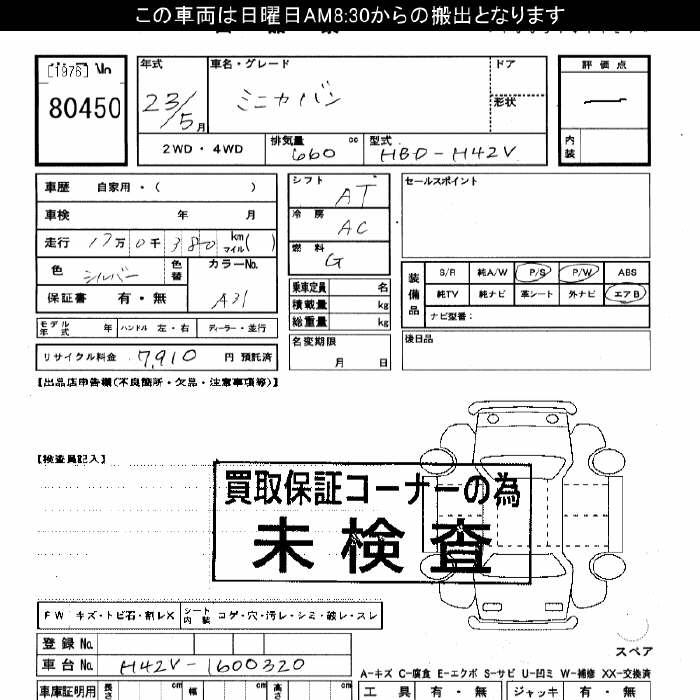 この車両は日曜日AM8:30からの搬出となります
[1976] No
80450
年式 車名・グレード ドア
23/5月 ミニカバン 形状
2WD・4WD 排気量 660 cc 型式 HBD-H42V
評価点
内装
車歴 自家用・( )
車検 年 月
走行 17万 0千 380 km マイル ( )
色 シルバー 色替 カラーNo. A31
保証書 有・無
モデル年式 年 ハンドル 左・右 ディーラー・並行
リサイクル料金 7,910 円 預託済
シフト AT
冷房 AC
燃料 G
乗車定員 名
積載量 kg
総重量 kg
名変期限 月 日
セールスポイント
装備品
S/R 純A/W P/S P/W ABS
純TV 純ナビ 革シート 外ナビ エアB
ナビ型番:
後日品
【出品店申告欄(不良箇所・欠品・注意事項等)】
【検査員記入】
買取保証コーナーの為
未検査
FW キズ・トビ石・割レX シート内装 コゲ・穴・汚レ・シミ・破レ・スレ
登録No.
車台No. H42V-1600320
スペア
A-キズ C-腐食 E-エクボ S-サビ U-凹ミ W-補修 XX-交換済
車庫証明用 長さ cm 幅 cm 高さ cm
工具 有・無 ジャッキ 有・無